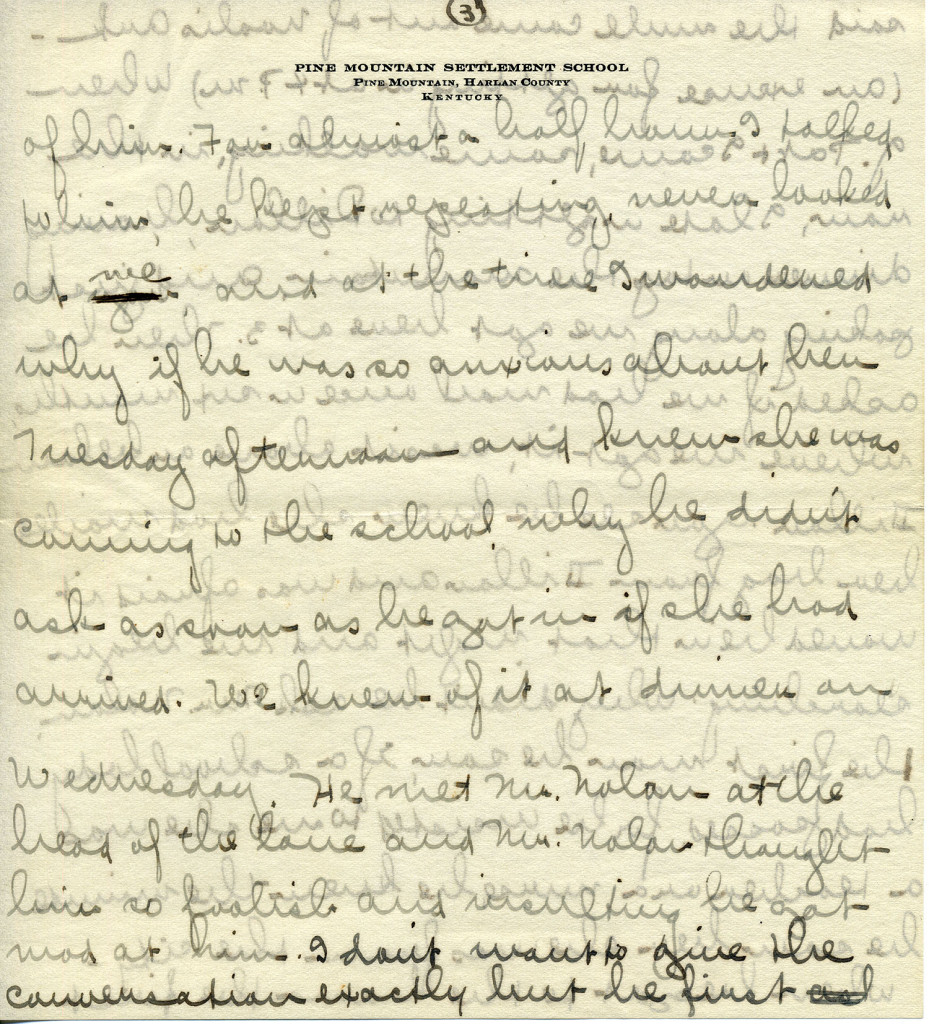 (3)
PINE MOUNTAIN SETTLEMENT SCHOOL
PINE MOUNTAIN, HARLAN COUNTY
KENTUCKY
of him. For almost a half hour I talked
to him, he kept repeating, never looked
at me and at the time I wondered
why if he was so anxious about her
Tuesday afternoon and knew she was
coming to the school why he didn't
ask as soon as he got in if she had
arrived. We knew of it at dinner on
Wednesday. He met Mr. Nolan at the
head of the lane and Mr. Nolan thought
him so foolish and insulting he got
mad at him. I don't want to give the
conversation exactly but he first